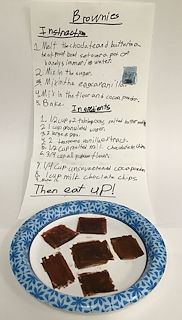 Brownies
Instructions
1. Melt the chocolate and butter in a
heat proof bowl over a pan of
barely simmering water.
2. Mix in the sugar.
3. Mix in the eggs and vanilla
4. Mix in the flour and cocoa powder.
5. Bake
Ingredients
1. 1/2 cup + 2 tablespoons butter
2. 1 cup granulated water
3. 2 large eggs
4. 2 teaspoons vanilla extract
5. 1/2 cup melted milk chocolate chips
6. 3/4 cup all purpose flour
7. 1/4 cup unsweetened cocoa powder
8. 1 cup milk choclate chips
Then eat UP!